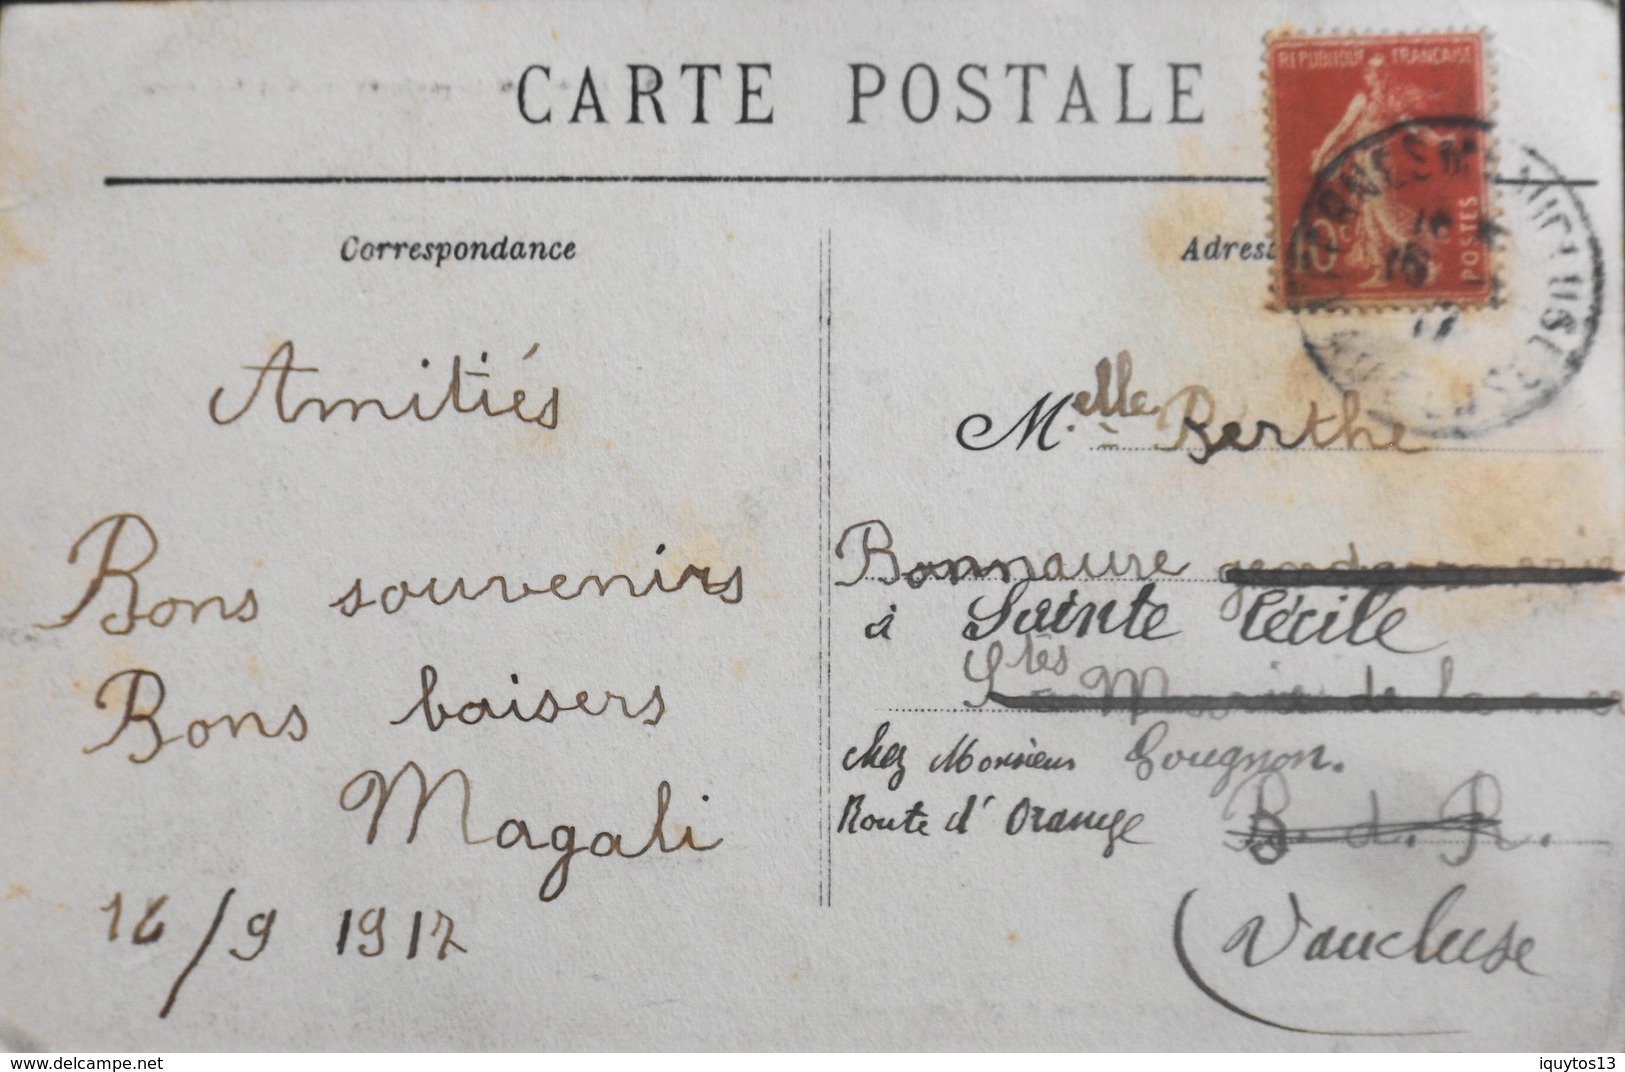 CARTE POSTALE
REPUBLIQUE FRANÇAISE
POSTES
Correspondance
Amitiés
Bons souvenirs
Bons baisers
Magali
16/9 1917
M.elle Berthe
Bonnaure
à Sainte Cécile
Stes
de la
chez Monsieur Gougnon.
Route d'Orange
B. d. R.
(Vaucluse
www.delcampe.net
iquytos13